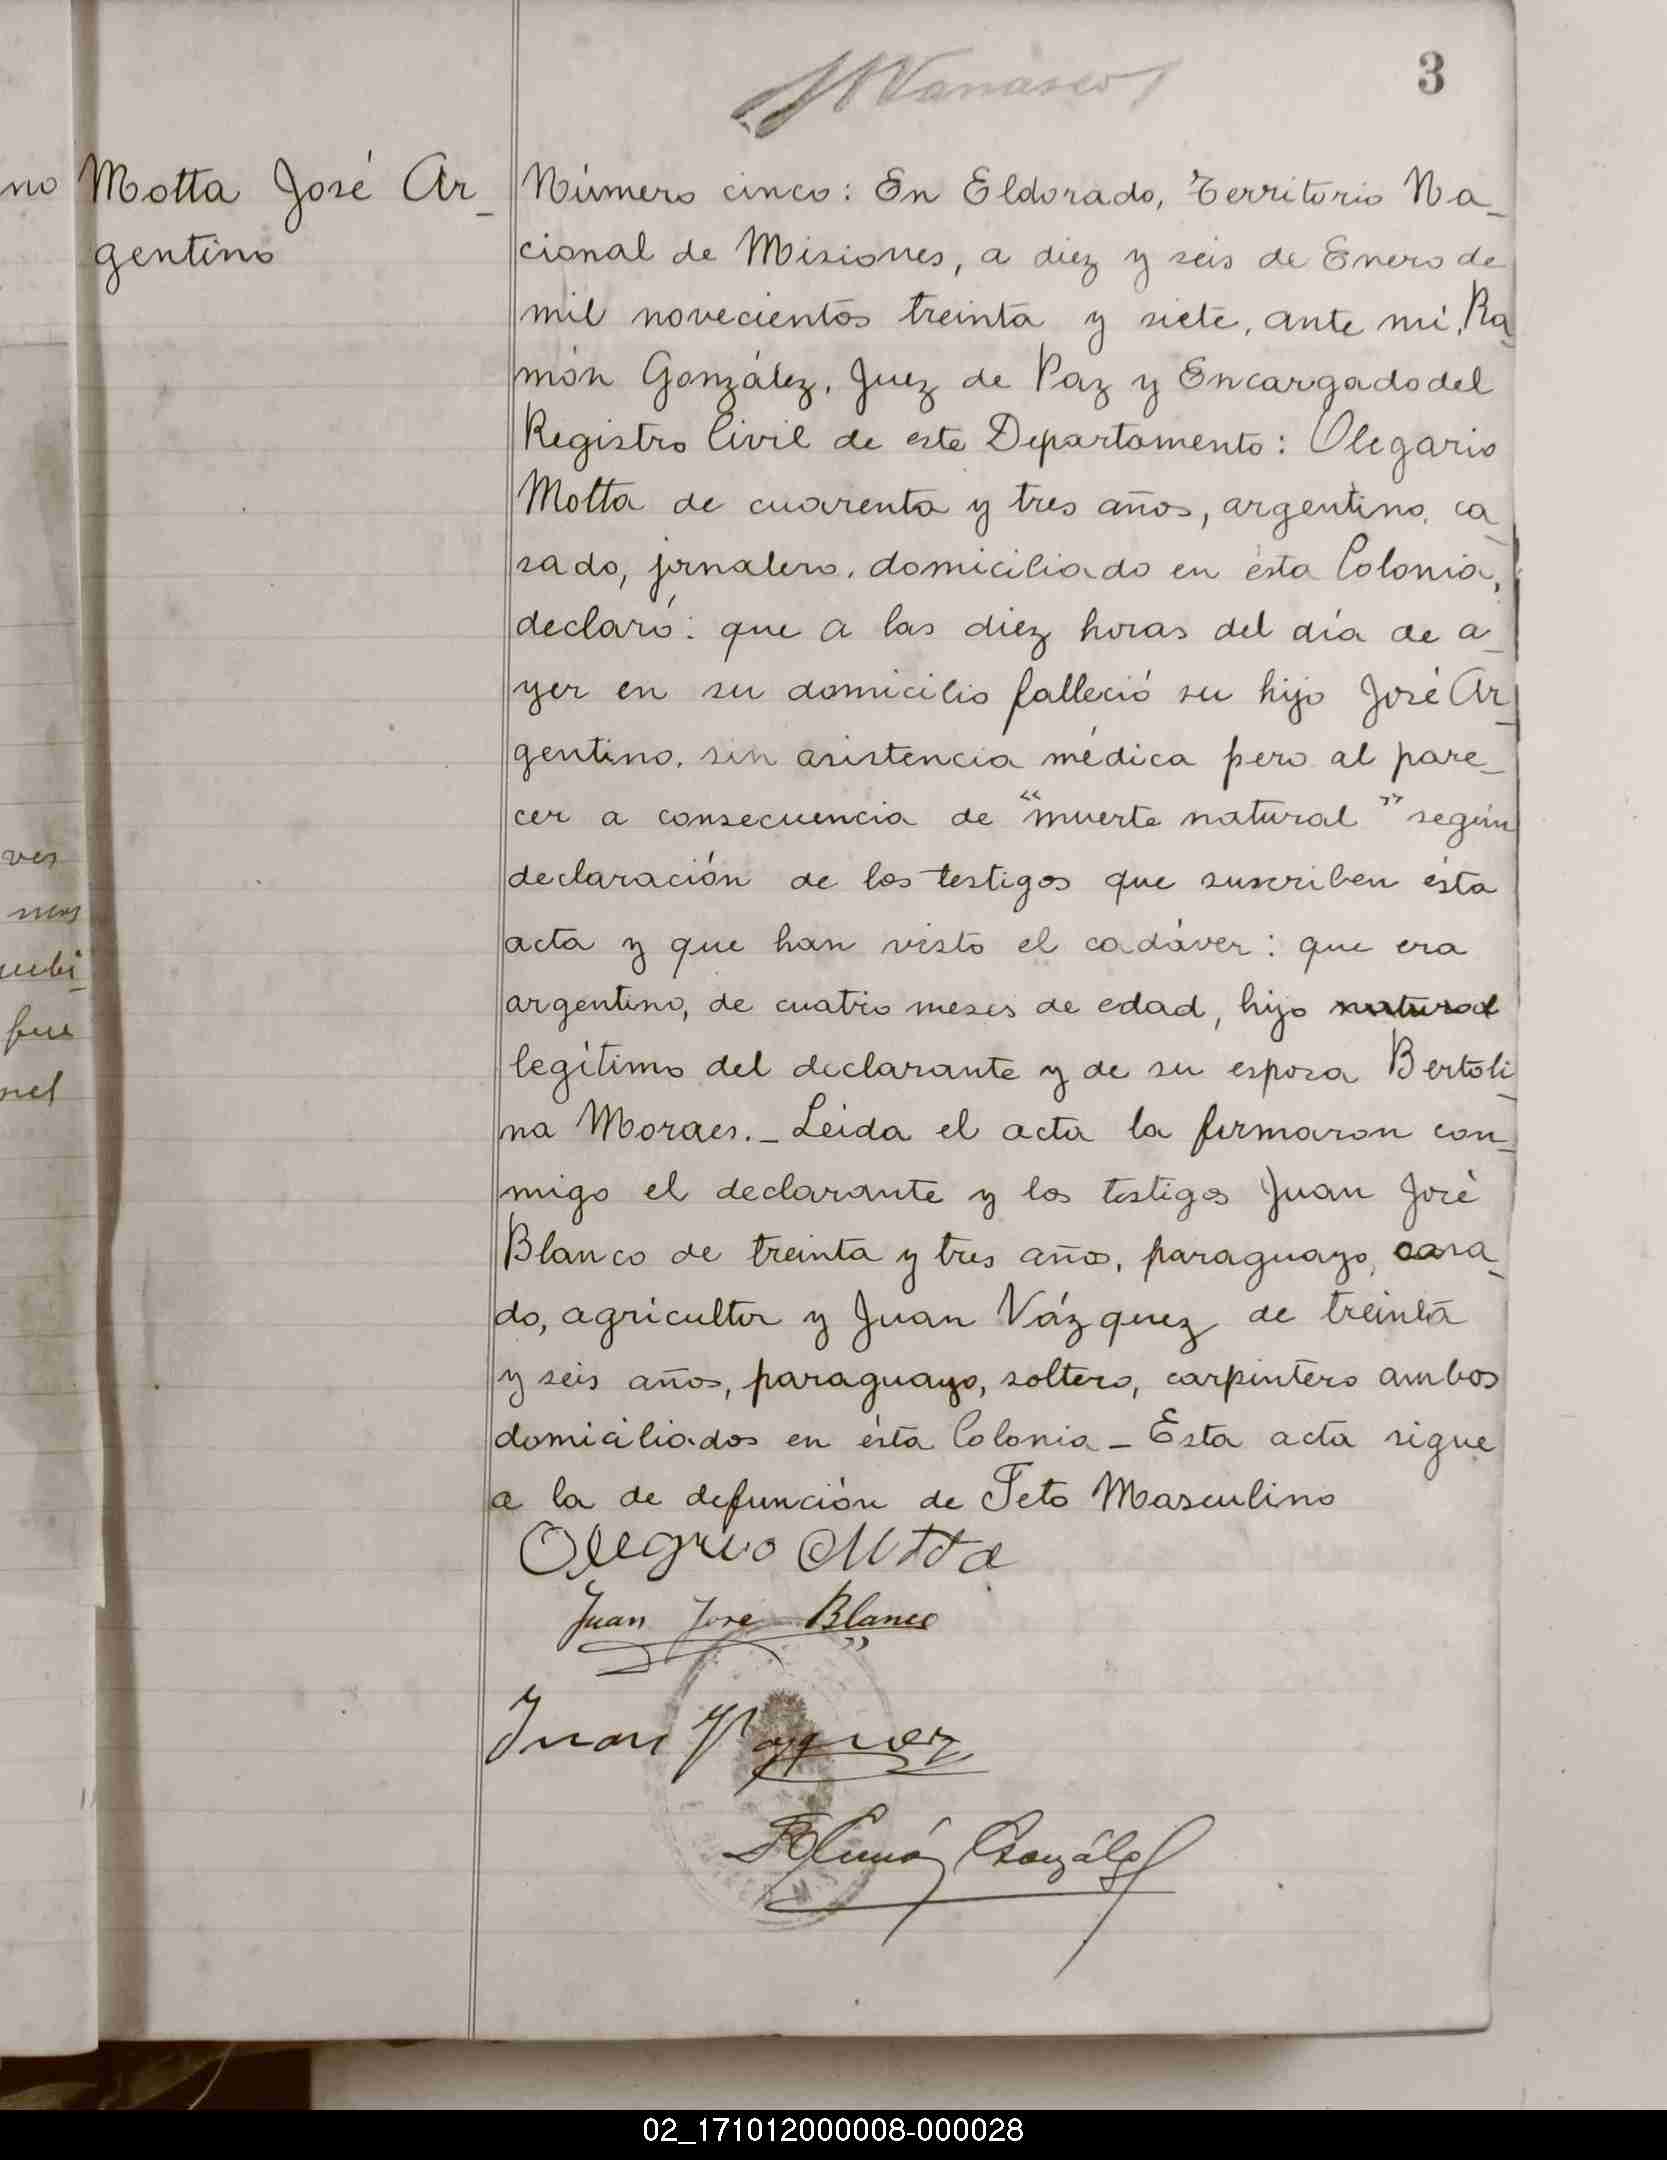 3
no
Motta José Ar_
gentino
Número cinco: En Eldorado, Territorio Na_
cional de Misiones, a diez y seis de Enero de
mil novecientos treinta y siete, ante mí, Ra_
món González, Juez de Paz y Encargado del
Registro Civil de este Departamento: Olegario
Motta de cuarenta y tres años, argentino, ca_
sado, jornalero, domiciliado en ésta Colonia,
declaró: que a las diez horas del día de a_
yer en su domicilio falleció su hijo José Ar_
gentino, sin asistencia médica pero al pare_
cer a consecuencia de "muerte natural" según
declaración de los testigos que suscriben ésta
acta y que han visto el cadáver: que era
argentino, de cuatro meses de edad, hijo natural
legítimo del declarante y de su esposa Bertoli_
na Moraes._ Leida el acta la firmaron con_
migo el declarante y los testigos Juan José
Blanco de treinta y tres años, paraguayo, casa_
do, agricultor y Juan Vázquez de treinta
y seis años, paraguayo, soltero, carpintero ambos
domiciliados en ésta Colonia_ Esta acta sigue
a la de defunción de Feto Masculino
Olegrio Motta
Juan José Blanco
Juan Vazquez
Ramón González
02_171012000008-000028